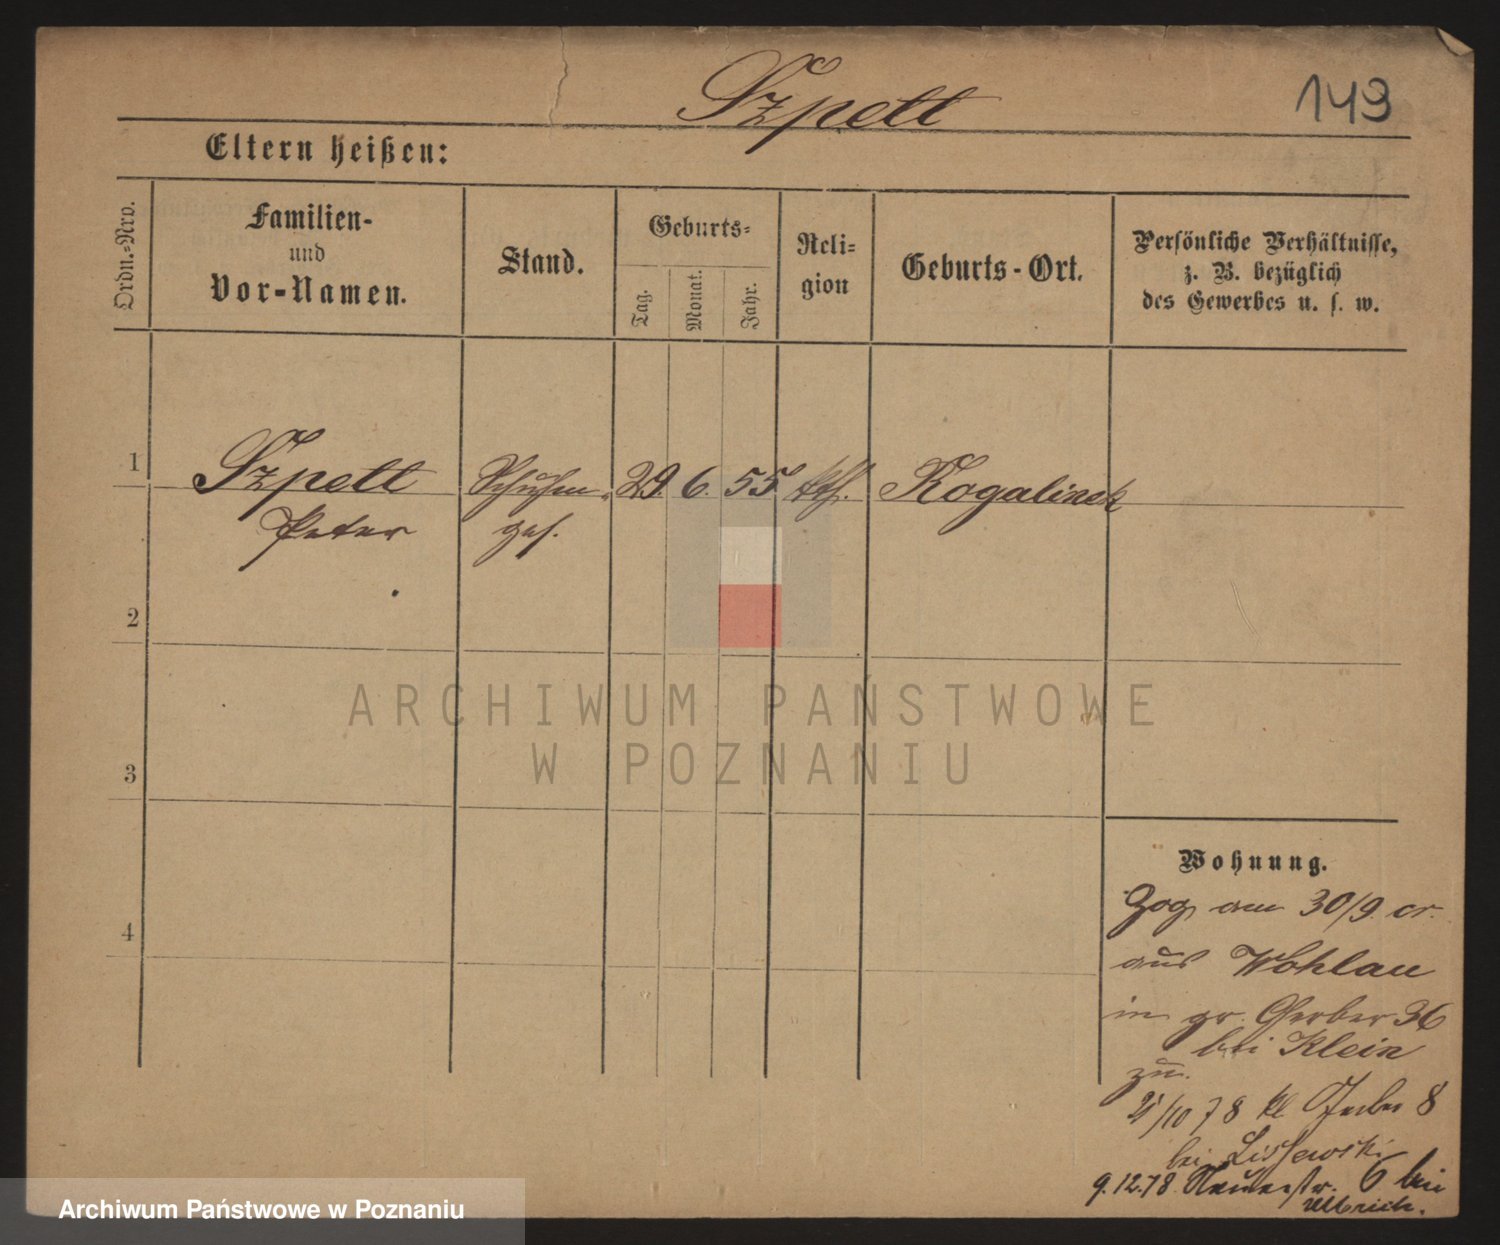 Szpett
143
Eltern heißen:
Ordn.-Nro.
Familien-
und
Vor-Namen.
Stand.
Geburts-
Tag.
Monat.
Jahr.
Reli-
gion
Geburts-Ort.
Persönliche Verhältnisse,
z. B. bezüglich
des Gewerbes u. s. w.
1
Szpett
Peter
Schuhm.
ges.
29.
6.
55.
kth.
Rogalinek
2
3
4
ARCHIWUM PAŃSTWOWE
W POZNANIU
Wohnung.
Zog am 30/9. cr.
aus Wohlau
in gr. Gerber 36
bei Klein
zu.
/10 78 kl Gerber 8
bei Lissewski
9.12.78 6 bei
Ulbrich.
Archiwum Państwowe w Poznaniu